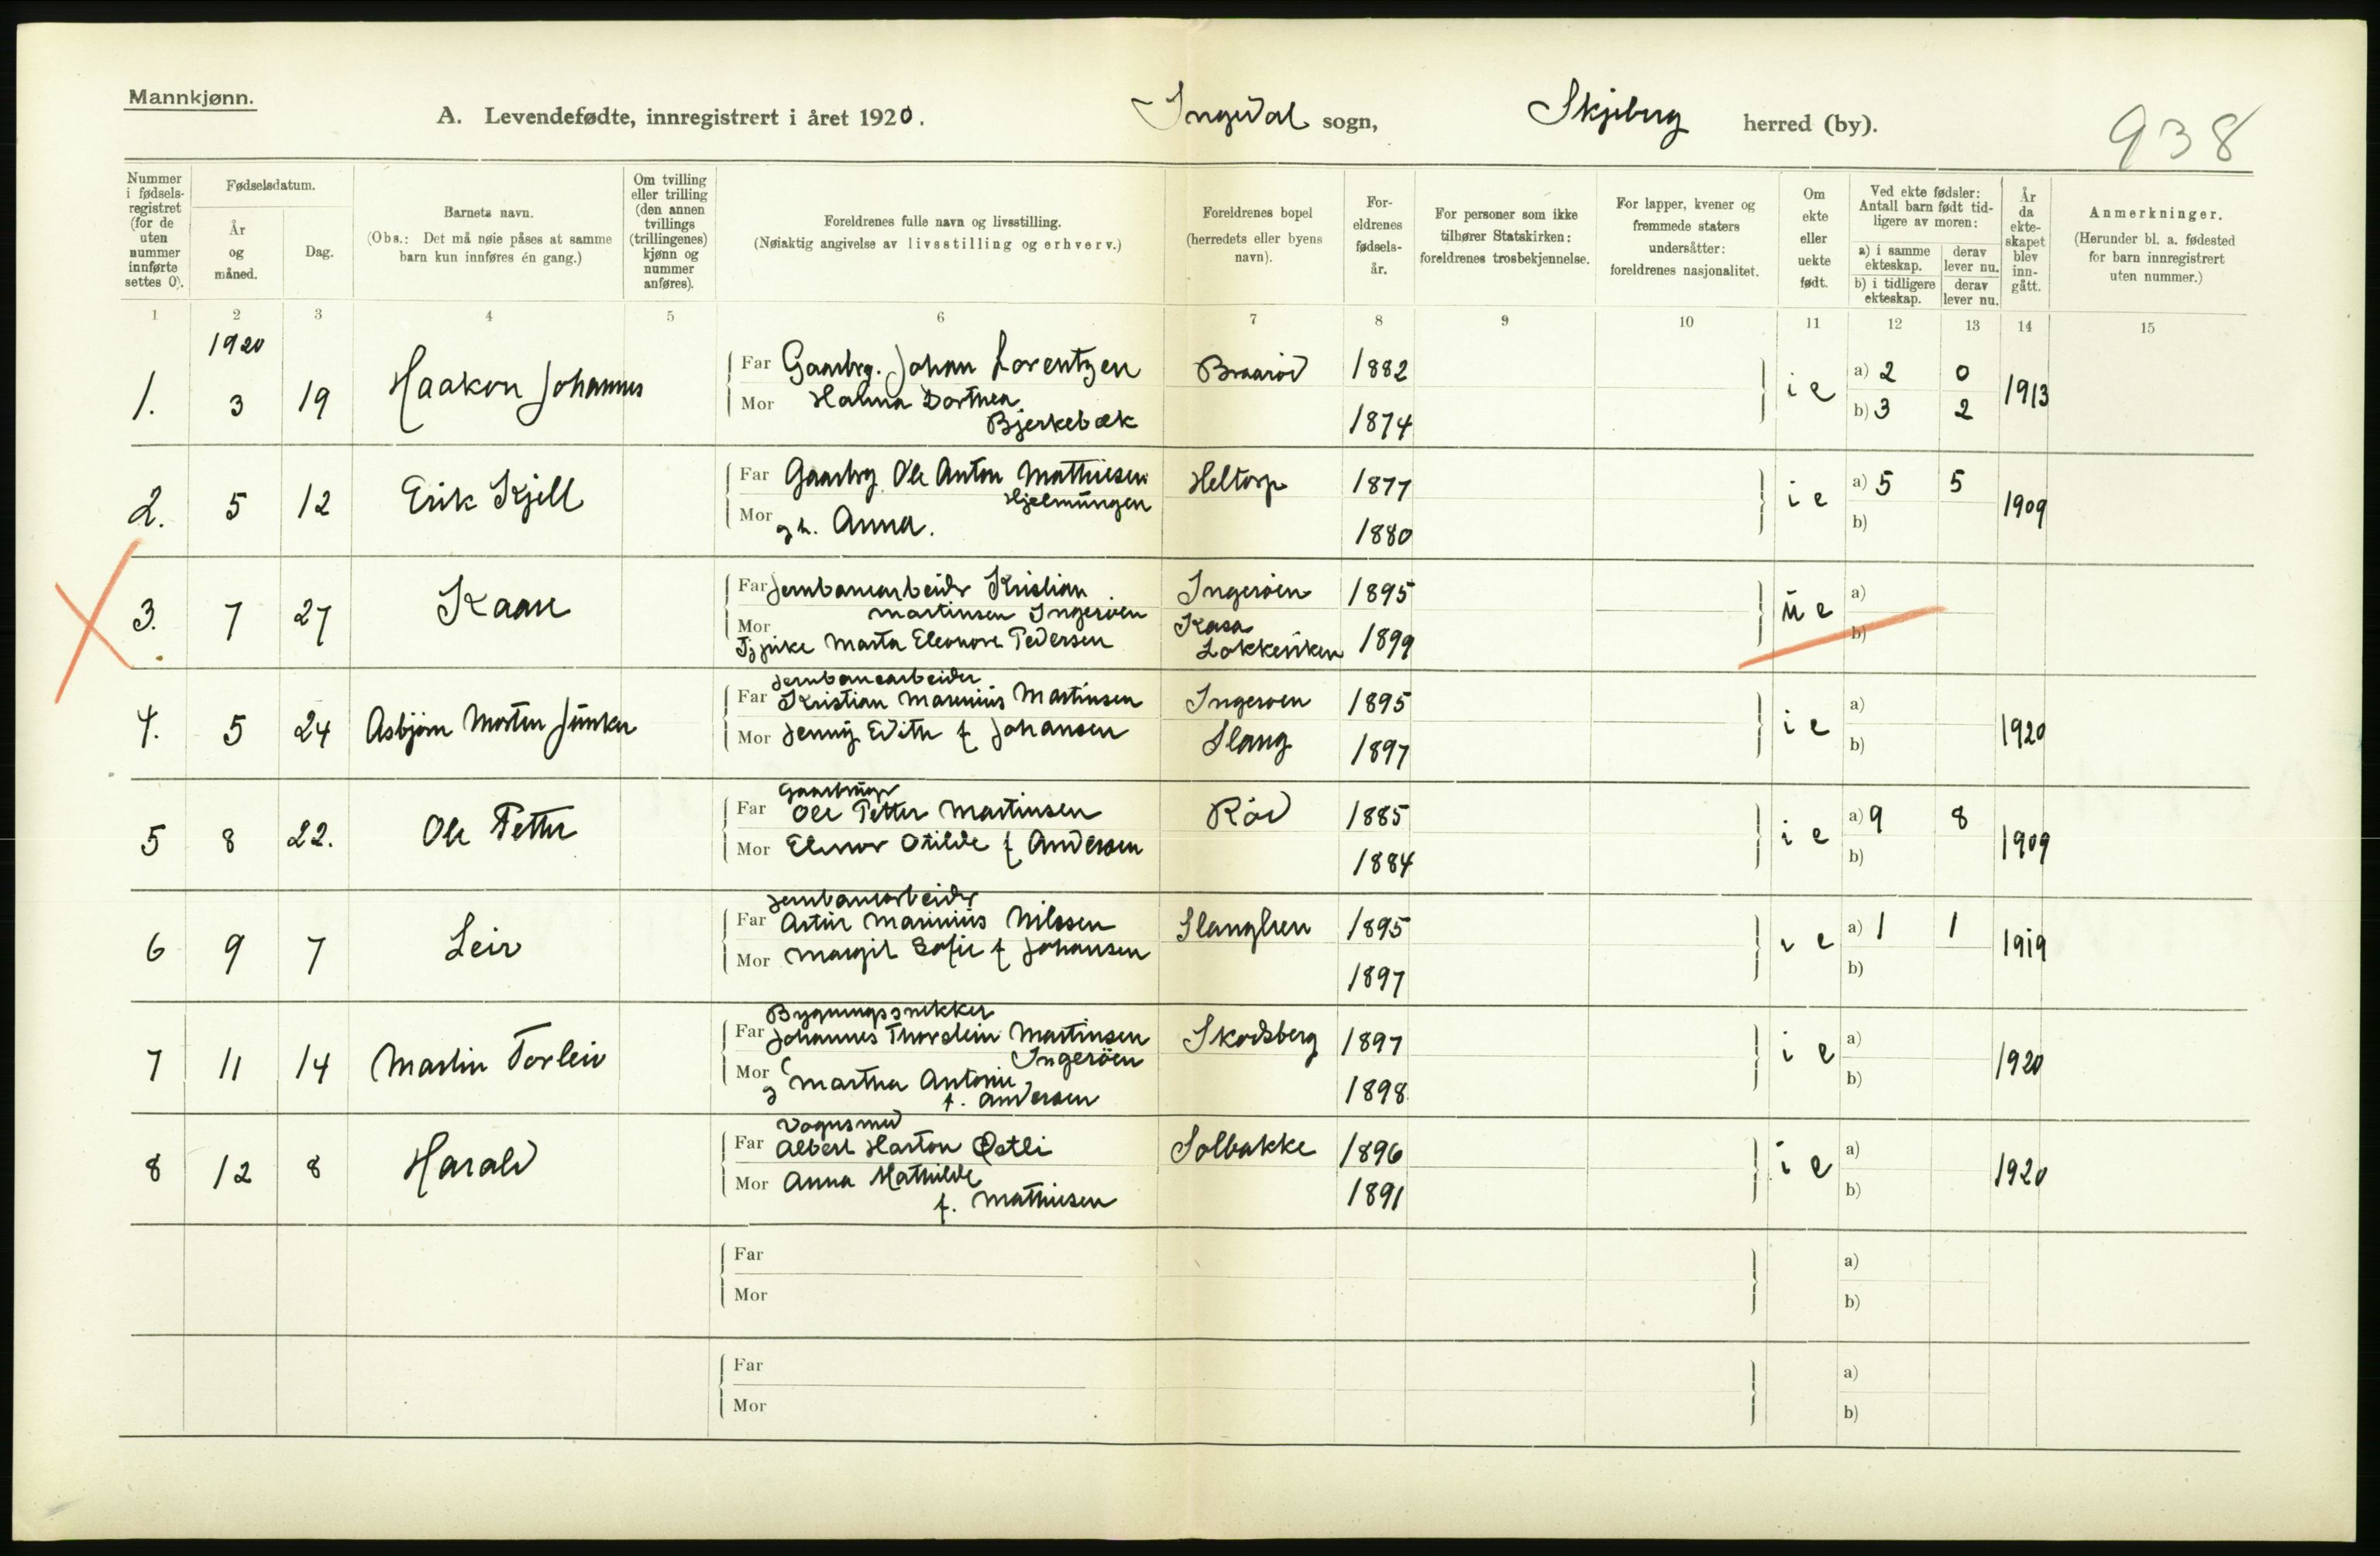 Mannkjønn.
A. Levendefødte, innregistrert i året 1920.
Ingedal sogn,
Skjeberg herred (by).
938
Nummer i fødsels-registret (for de uten nummer innførte settes 0).
Fødselsdatum.
År og måned.
Dag.
Barnets navn.
(Obs.: Det må nøie påses at samme barn kun innføres én gang.)
Om tvilling eller trilling (den annen tvillings (trillingenes) kjønn og nummer anføres).
Foreldrenes fulle navn og livsstilling.
(Nøiaktig angivelse av livsstilling og erhverv.)
Foreldrenes bopel (herredets eller byens navn).
For-eldrenes fødsels-år.
For personer som ikke tilhører Statskirken: foreldrenes trosbekjennelse.
For lapper, kvener og fremmede staters undersåtter: foreldrenes nasjonalitet.
Om ekte eller uekte født.
Ved ekte fødsler: Antall barn født tid-ligere av moren:
a) i samme ekteskap.
derav lever nu.
b) i tidligere ekteskap.
derav lever nu.
År da ekte-skapet blev inn-gått.
Anmerkninger.
(Herunder bl. a. fødested for barn innregistrert uten nummer.)
1 2 3 4 5 6 7 8 9 10 11 12 13 14 15
1920
1. 3 19 Haakon Johannes
Far Gaarbrg. Johan Lorentzen Braarød 1882
Mor Halma Dorthea
Bjerkebæk 1874
i e a) 2 0
b) 3 2
1913
2. 5 12 Erik Kjell
Far Gaarbrg Ole Anton Mathiesen Heltorp 1877
Hjelmungen
Mor g h. Anna. 1880
i e a) 5 5
b)
1909
3. 7 27 Kaare
Far Jernbanearbeider Kristian Ingerøen 1895
Martinsen Ingerøen
Mor
Marta Eleonore Pedersen 1899
u e a)
b)
4. 5 24 Asbjørn Morten Junker
Jernbanearbeider
Far Kristian Marinius Martinsen Ingerøen 1895
Mor Jenny Edith f Johansen Slang 1897
i e a)
b)
1920
5 8 22. Ole Petter
Gaarbruger
Far Ole Petter Martinsen Rød 1885
Mor Elinor Otilde f Andersen 1884
i e a) 9 8
b)
1909
6 9 7 Leiv
Jernbanearbeider
Far Artur Marinius Nilssen 1895
Mor Margit Sofie f Johansen 1897
i e a) 1 1
b)
1919
7 11 14 Martin Torleiv
Bygningssnekker
Far Johannes Thorstein Martinsen Skodsberg 1897
Ingerøen
Mor g Martha Antonie
f. Andersen 1898
i e a)
b)
1920
8 12 8 Harald
Vognsmed
Far Albert Harton Østli Solbakke 1896
Mor Anna Mathilde
f. Mathiesen 1891
i e a)
b)
1920
Far
Mor
a)
b)
Far
Mor
a)
b)